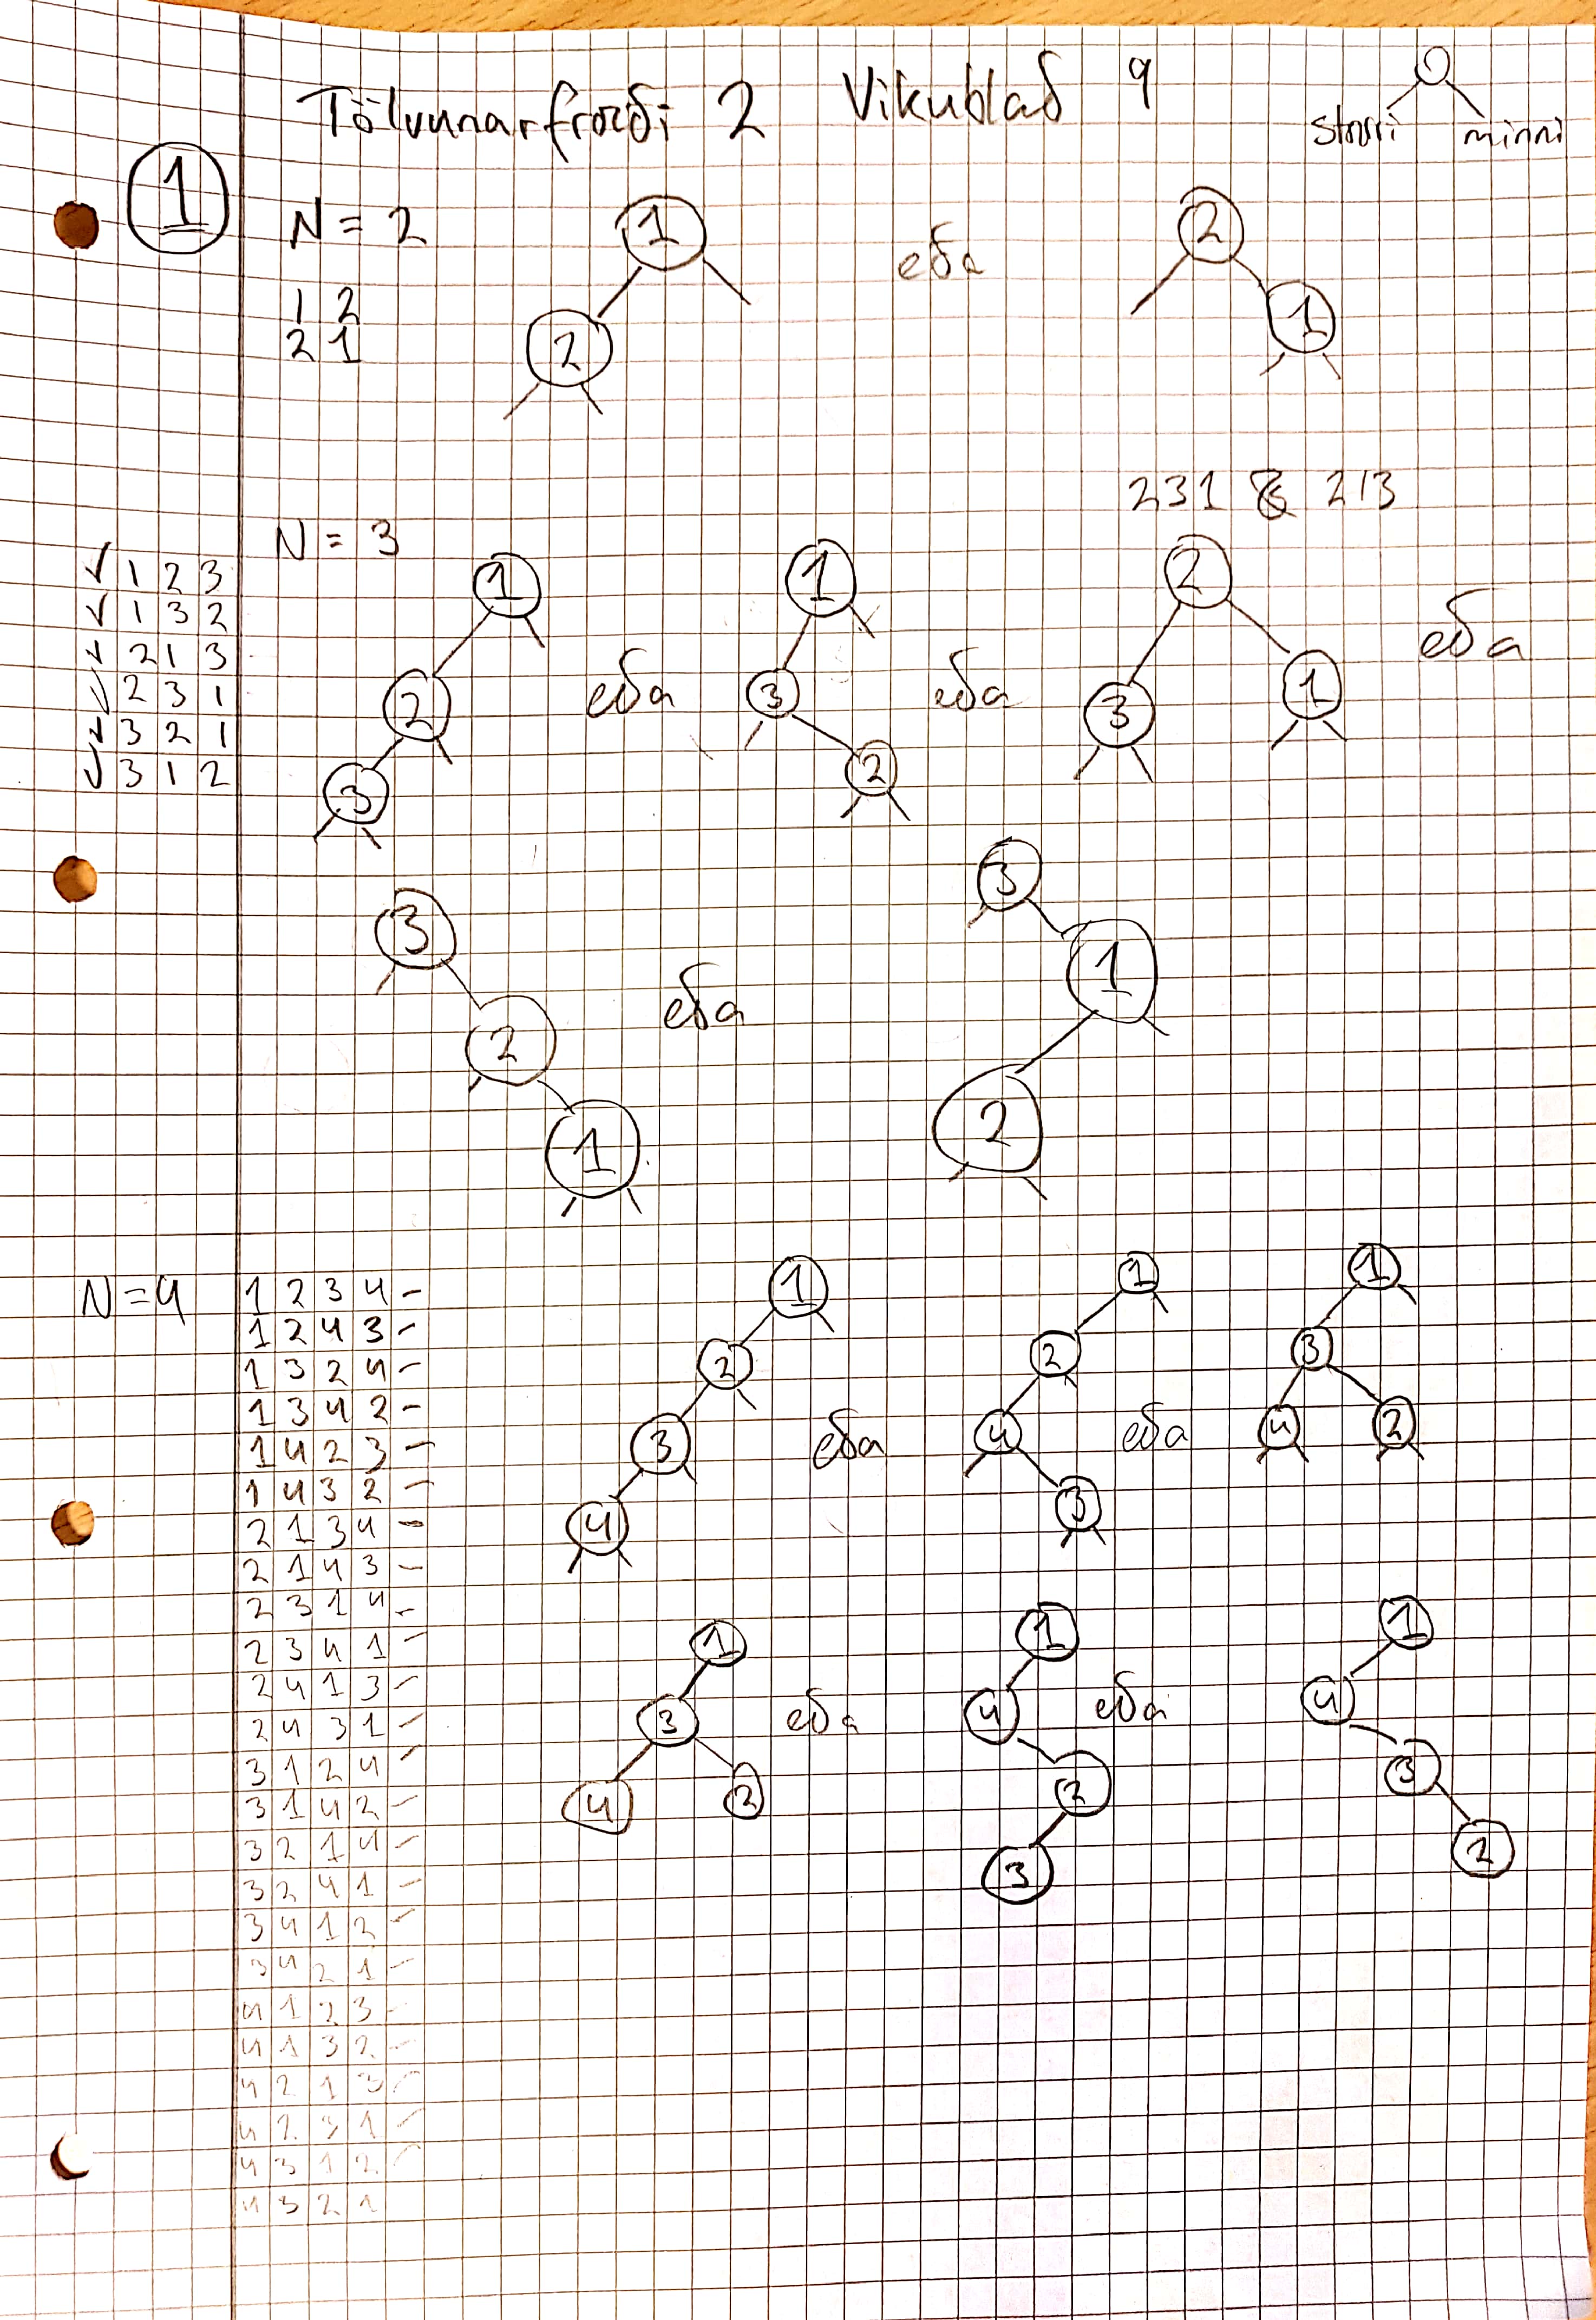 Tölvunarfræði 2 Vikublað 9
stærri minni
1
N = 2
1 2
2 1
1
2
eða
2
1
231 & 213
N = 3
✓ 1 2 3
✓ 1 3 2
✓ 2 1 3
✓ 2 3 1
✓ 3 2 1
✓ 3 1 2
1
2
3
eða
1
3
2
eða
2
3 1
eða
3
2
1
eða
3
1
2
N = 4
1 2 3 4 -
1 2 4 3 -
1 3 2 4 -
1 3 4 2 -
1 4 2 3 -
1 4 3 2 -
2 1 3 4 -
2 1 4 3 -
2 3 1 4 -
2 3 4 1 -
2 4 1 3 -
2 4 3 1 -
3 1 2 4 -
3 1 4 2 -
3 2 1 4 -
3 2 4 1 -
3 4 1 2 -
3 4 2 1 -
4 1 2 3 -
4 1 3 2 -
4 2 1 3 -
4 2 3 1 -
4 3 1 2 -
4 3 2 1
1
2
3
4
eða
1
2
4
3
eða
1
3
4 2
1
3
4 2
eða
1
4
2
3
eða
1
4
3
2